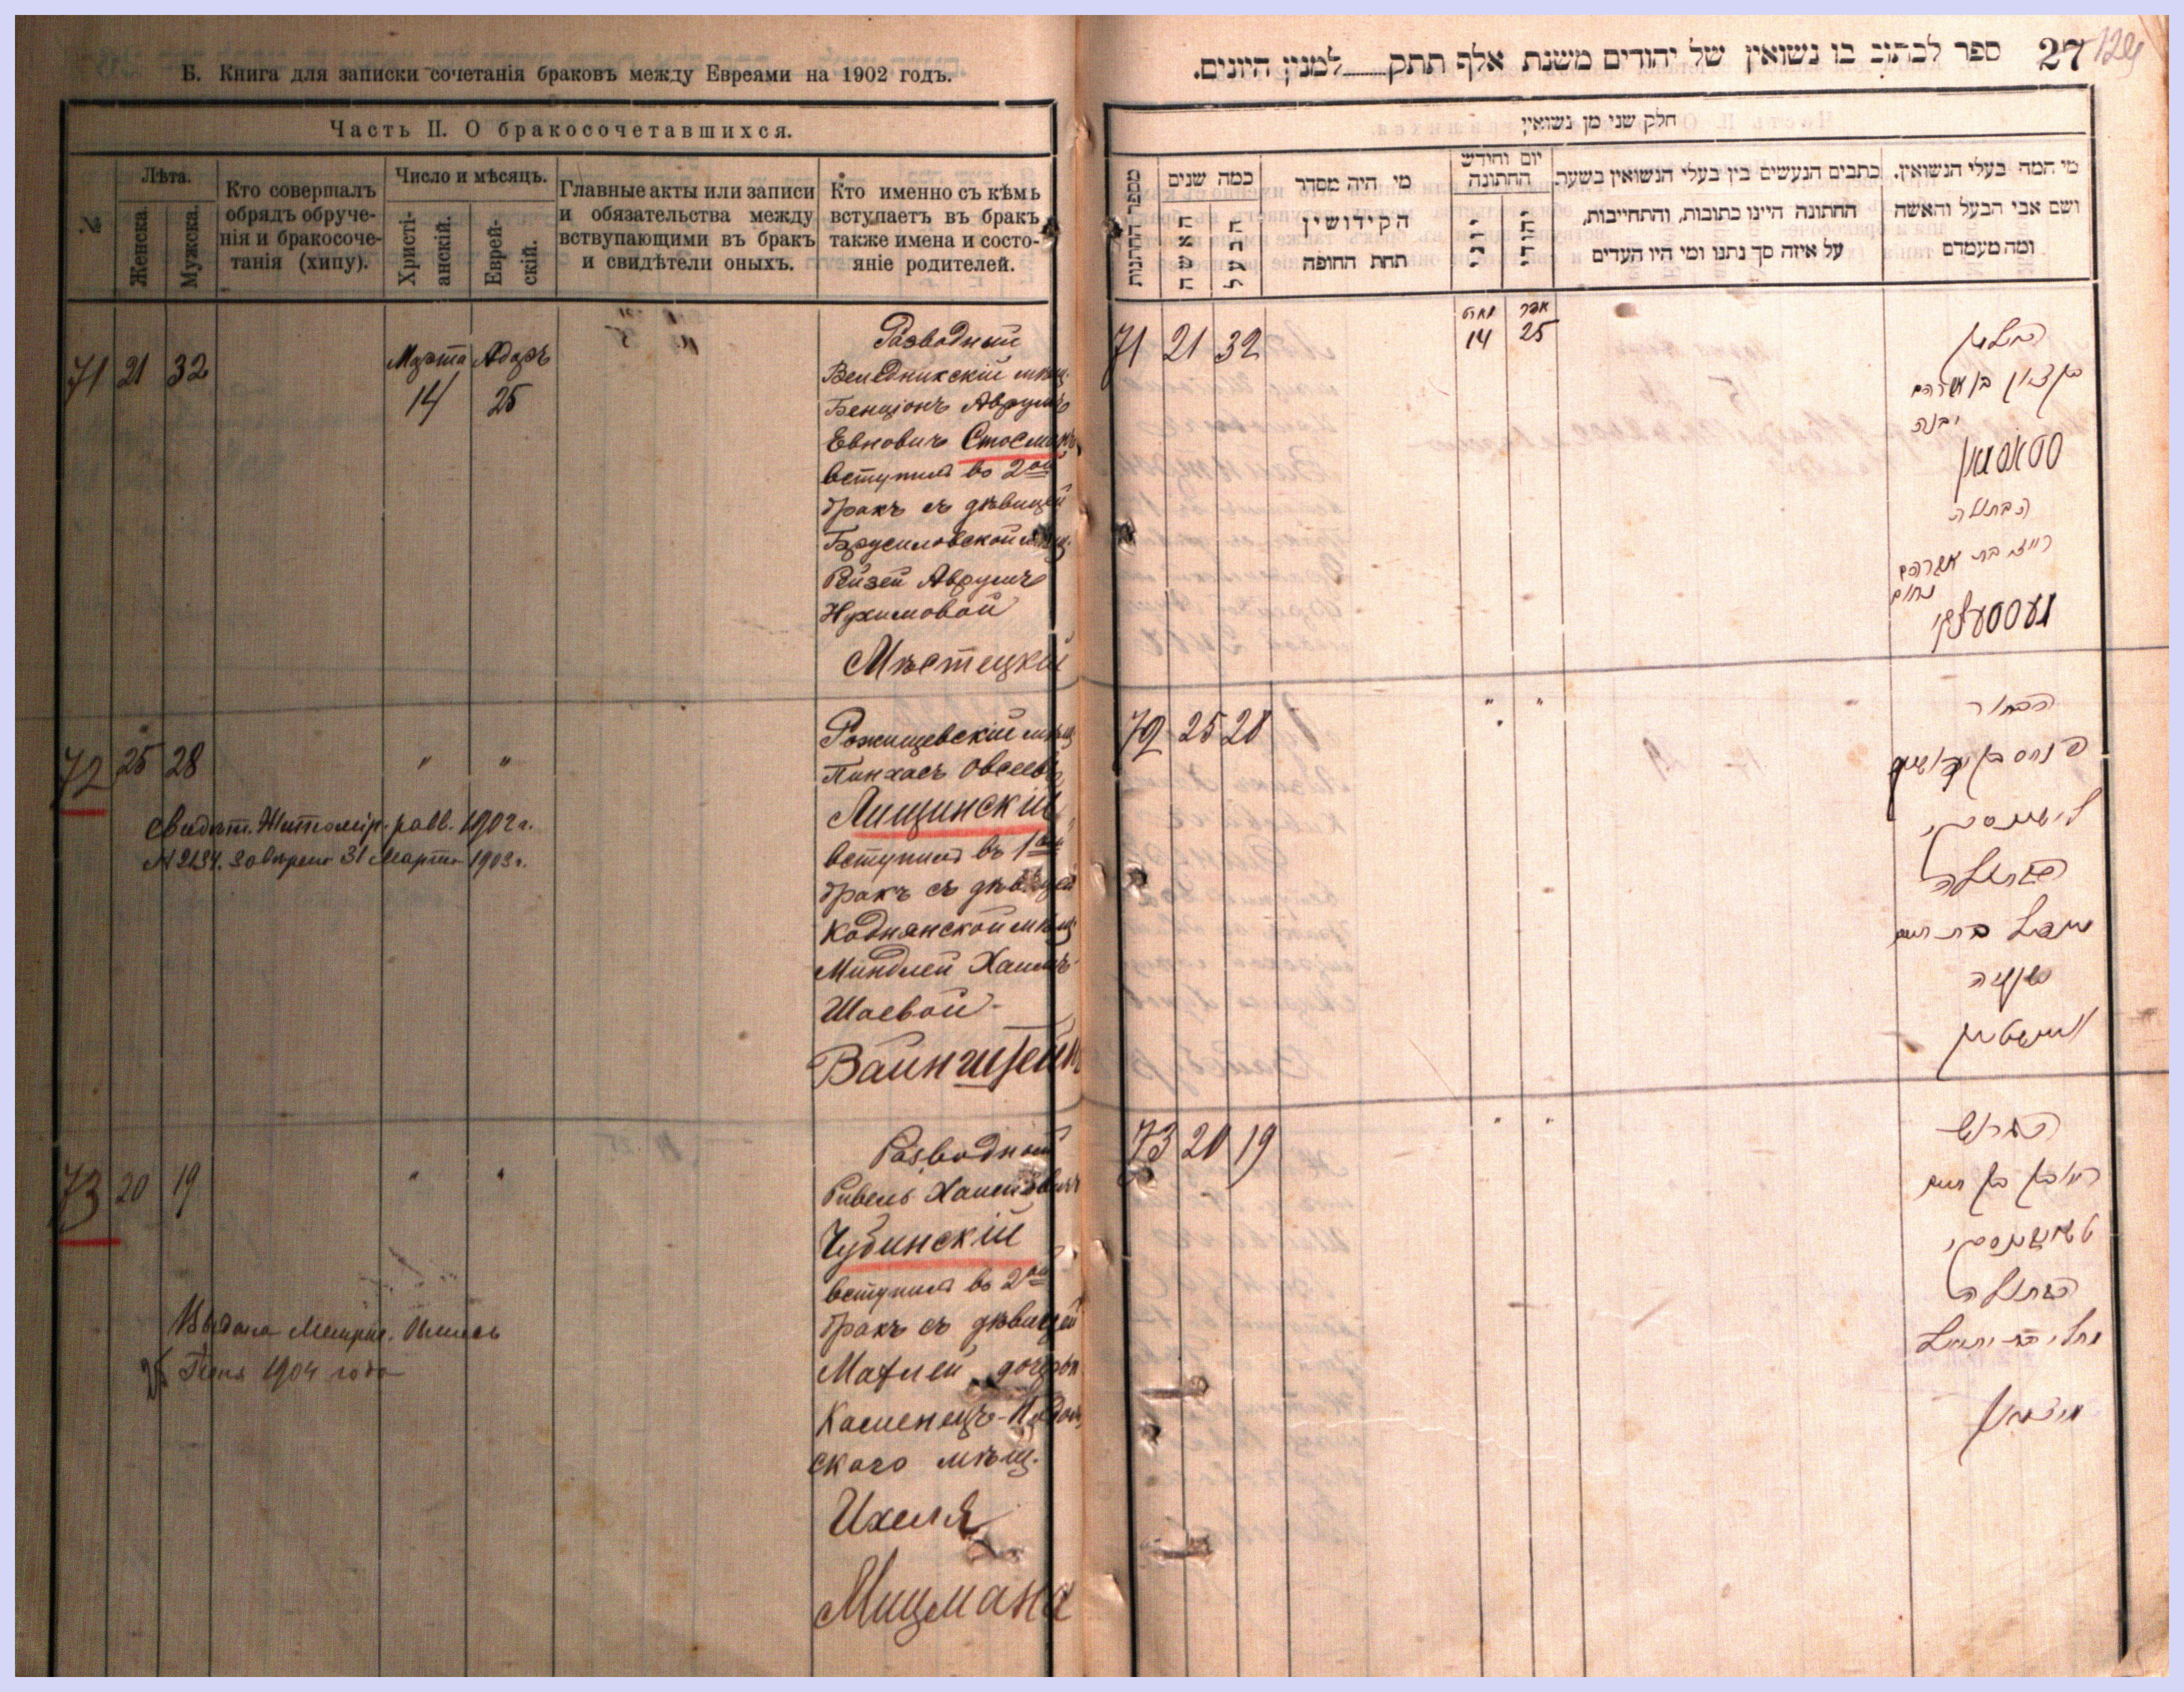 Б. Книга для записки сочетанія браковъ между Евреями на 1902 годъ.
Часть II. О бракосочетавшихся.
№
Лѣта.
Женска.
Мужска.
Кто совершалъ
обрядъ обруче-
нія и бракосоче-
танія (хипу).
Число и мѣсяцъ.
Христі-
анскій.
Еврей-
скій.
Главные акты или записи
и обязательства между
вствупающими въ бракъ
и свидѣтели оныхъ.
Кто именно съ кѣмъ
вступаетъ въ бракъ
также имена и состо-
яніе родителей.
71 21 32
Марта Адаръ
14 25
Разводный
Веледникскій мѣщ.
Бенціонъ Аврумъ
Евновичъ Стосманъ
вступилъ во 2ой
бракъ съ дѣвицей
Брусиловской мѣщ.
Рейзей Аврумъ
Нухимовой
Мѣстецкій
72 25 28 " "
Свидѣт. Житомір. равв. 1902 г.
31 Марта 1903 г.
Рожищевскій мѣщ
Пинхасъ Овсеевъ
Лищинскій
вступилъ въ 1ый
бракъ съ дѣвицей
Коднянской мѣщ
Миндлей Хаимъ-
Шаевой-
Вайнштейнъ
73 20 19 " "
Выдана Метрич. Выпись
Іюня 1904 года
Разводный
Рувель Хаимовичъ
Чубинскій
вступилъ во 2ой
бракъ съ дѣвицей
Матлей дочерью
Каменецъ-Подоль
скаго мѣщ.
Ихеля
Мицмана
ספר לכתוב בו נשואין של יהודים משנת אלף תתק למנין היונים.
27
129
חלק שני מן נשואין
מספר החתנות
כמה שנים
האשה
הבעל
מי היה מסדר
הקידושין
תחת החופה
יום וחידש
החתונה
יווני
יהודי
כתבים הנעשים בין בעלי הנשואין בשעת
החתונה היינו כתובות, והתחייבות,
על איזה סך נתנו ומי היו העדים
מי המה בעלי הנשואין.
ושם אבי הבעל והאשה
ומה מעמדם
71 21 32
מארט אדר
14 25
בן ציון בן אברהם
יבנה
סטאסמאן
הבתולה
רייזא בת אברהם
נחום
מעסטעצקי
72 25 28 " "
הבחור
פנחס בן יהושע
לישינסקי
הבתולה
מינדל בת חיים
ישעיה
וויינשטיין
73 20 19 " "
הגרוש
ראובן בן חיים
טשובינסקי
הבתולה
מיצמאן